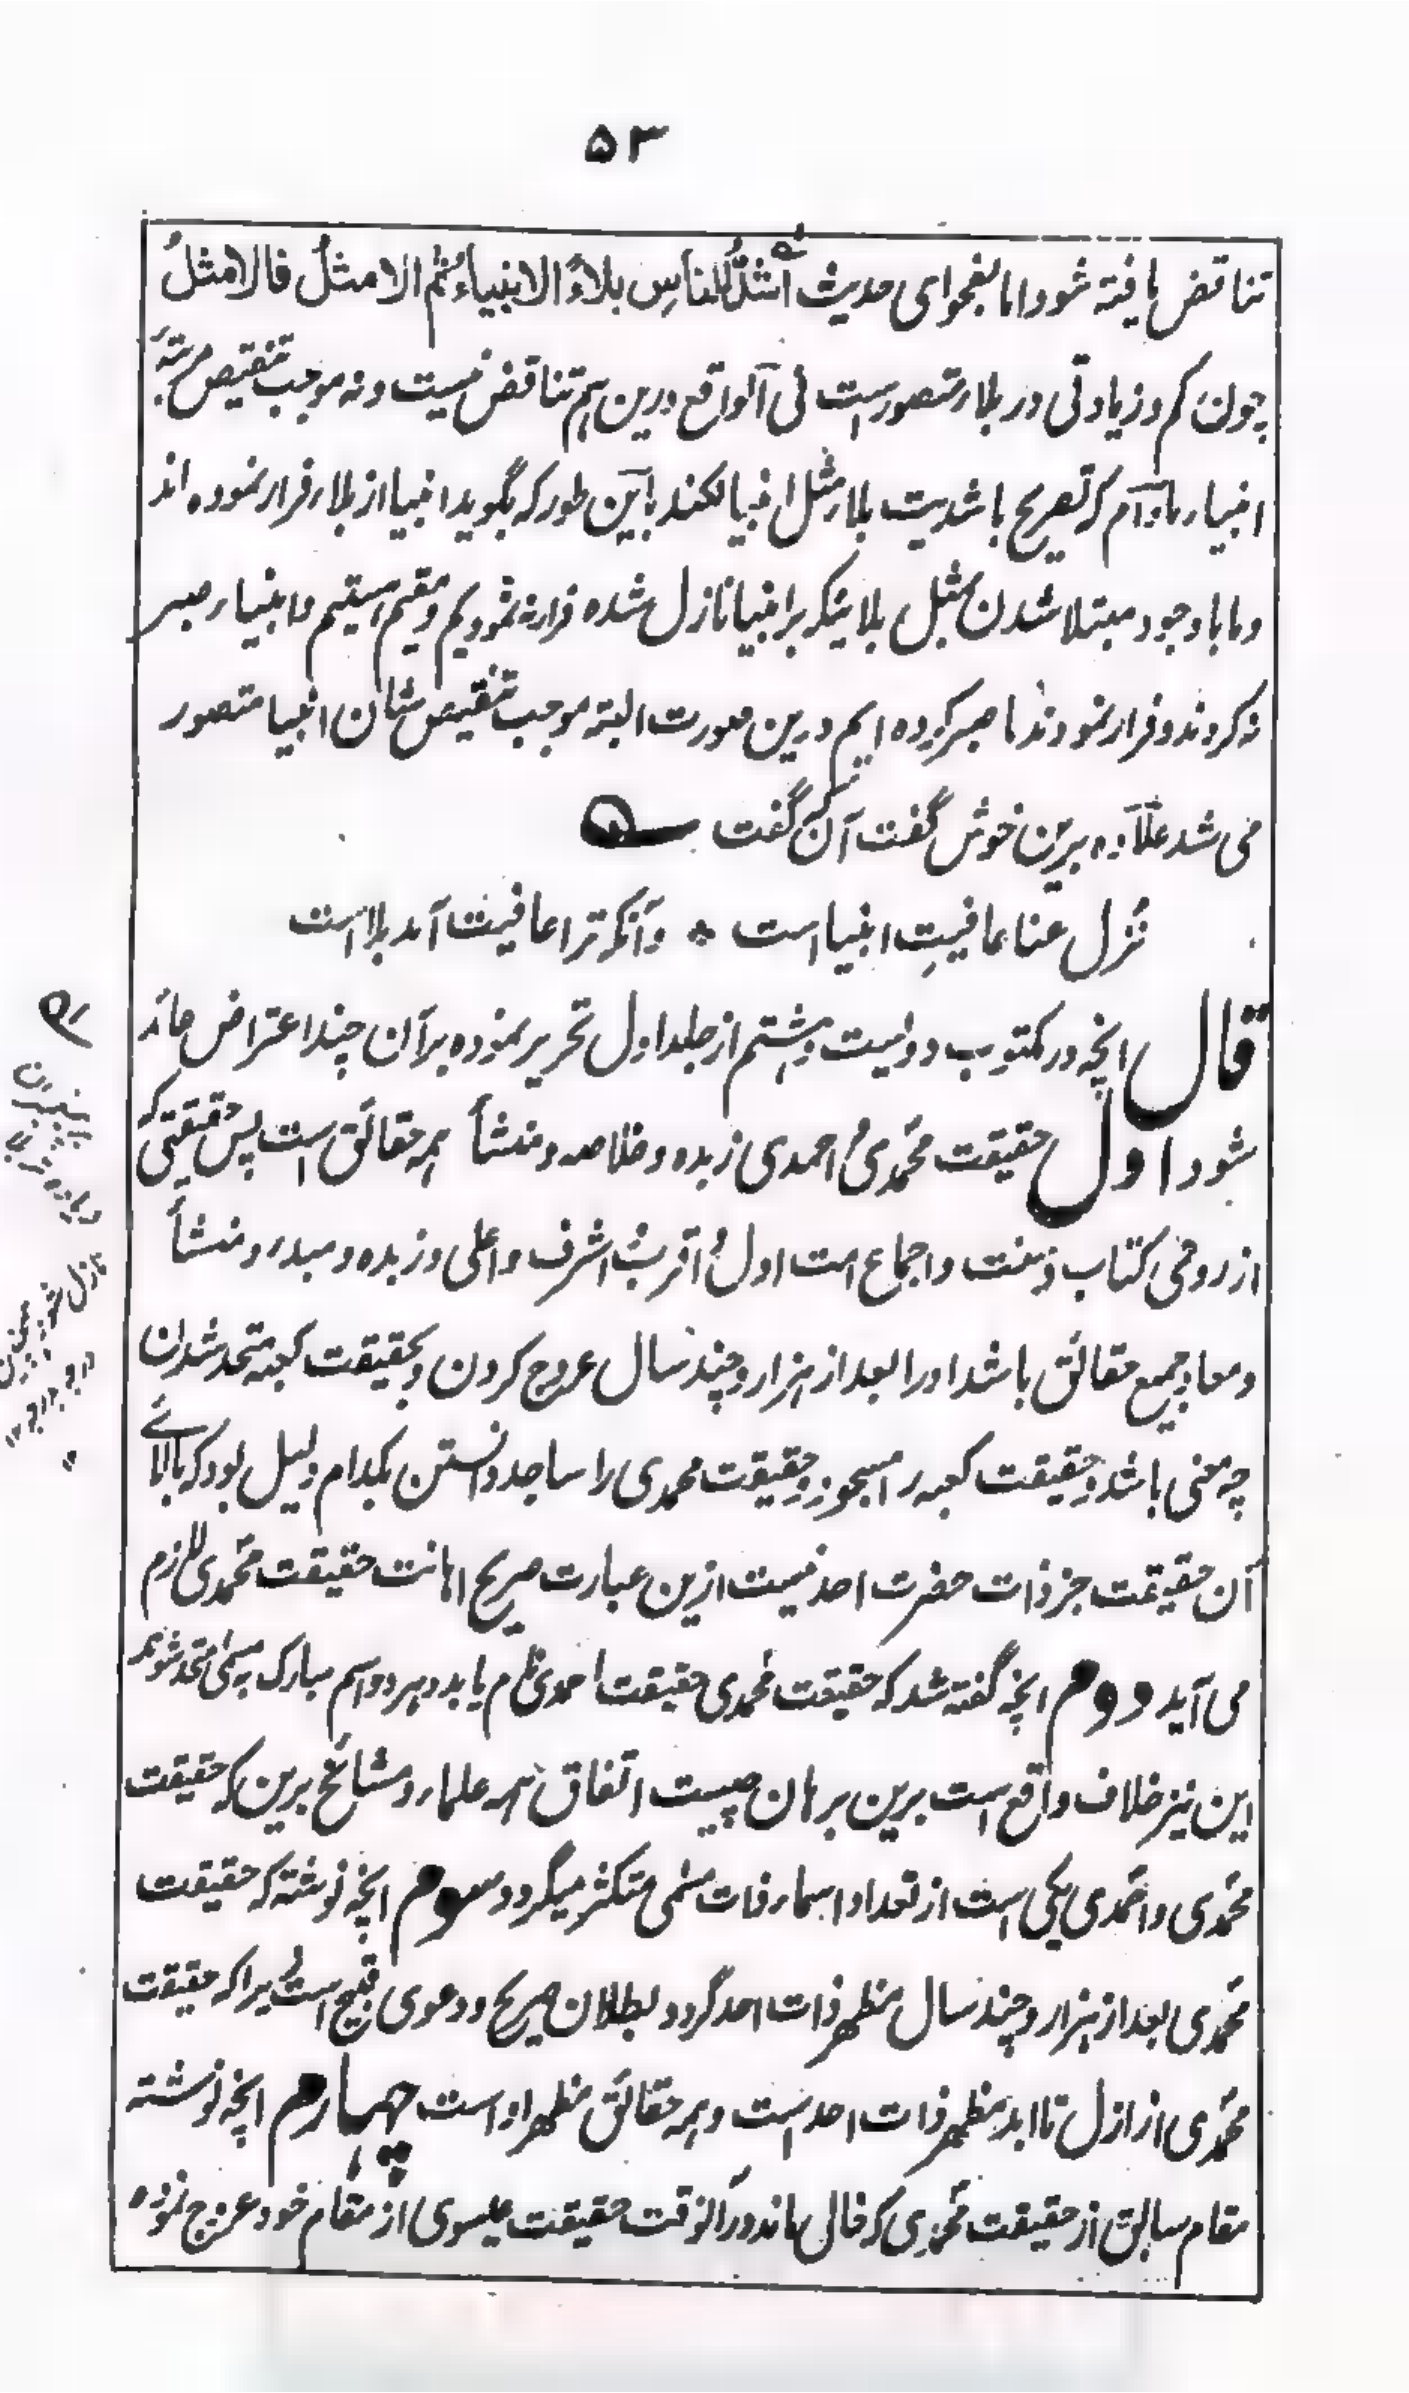 ۵۳
تناقض یافته شود اما بفحوای حدیث اَشَدُّ للناسِ بلاءً الانبیاءُ ثم الامثلُ فالامثلُ
چون کم و زیادتی در بلا متصور است فی الواقع درین هم تناقض نیست و نه موجب تنقیص مرتبهٔ
انبیا، که تصریح باشدیت بلا، مثل انبیا نکند بآین طور که بگوید انبیا از بلا، فرار نموده اند
و ما با وجود مبتلا شدن بمثل بلائیکه بر انبیا نازل شده فرار نه نمودیم و مقیم و انبیا، صبر
نه کردند و فرار نمودند ما صبر کرده ایم درین صورت البته موجب تنقیص شان انبیا متصور
می شد علاوه برین خوش گفت آن که گفت
نزل عنا عافیتِ انبیا است * و آنکه ترا عافیت آمد بلا است
قال انچه در مکتوب دولیست و هشتم از جلد اول تحریر نموده بر آن چند اعتراض عائد
شود اول حقیقت محمدی و احمدی زبده و خلاصه و منشأ همه حقائق است پس حقیقتی که
از روی کتاب و سنت و اجماع امت اول و اقرب و اشرف و اعلی و زبده و مبدء و منشأ
و معاد جمیع حقائق باشد او را بعد از هزار و چند سال عروج کردن و بحقیقت کعبه متحد شدن
چه معنی باشد و حقیقت کعبه را مسجود و حقیقت محمدی را ساجد دانستن بکدام دلیل بود که بالاے
آن حقیقت جز ذات حضرت احد نیست ازین عبارت صریح اهانت حقیقت محمدی لازم
می آید دوم انچه گفته شد که حقیقت محمدی حقیقت احمدی نام یابد و هر دو اسم مبارک بمسمی متحد شوند
این نیز خلاف واقع است برین برهان چیست اتفاق همه علما، و مشائخ برین که حقیقت
محمدی و احمدی یکی است از تعداد اسما، ذات مسمی متکثر میگردد سوم انچه نوشته که حقیقت
محمدی بعد از هزار و چند سال مظهر ذات احد گردد بطلان صریح و دعوی قبیح است زیرا که حقیقت
محمدی از ازل تا ابد مظهر ذات احد است و همه حقائق مظهر او است چهارم انچه نوشته
مقام سابق از حقیقت محمدی که خالی ماند در آنوقت حقیقت عیسوی از مقام خود عروج نموده